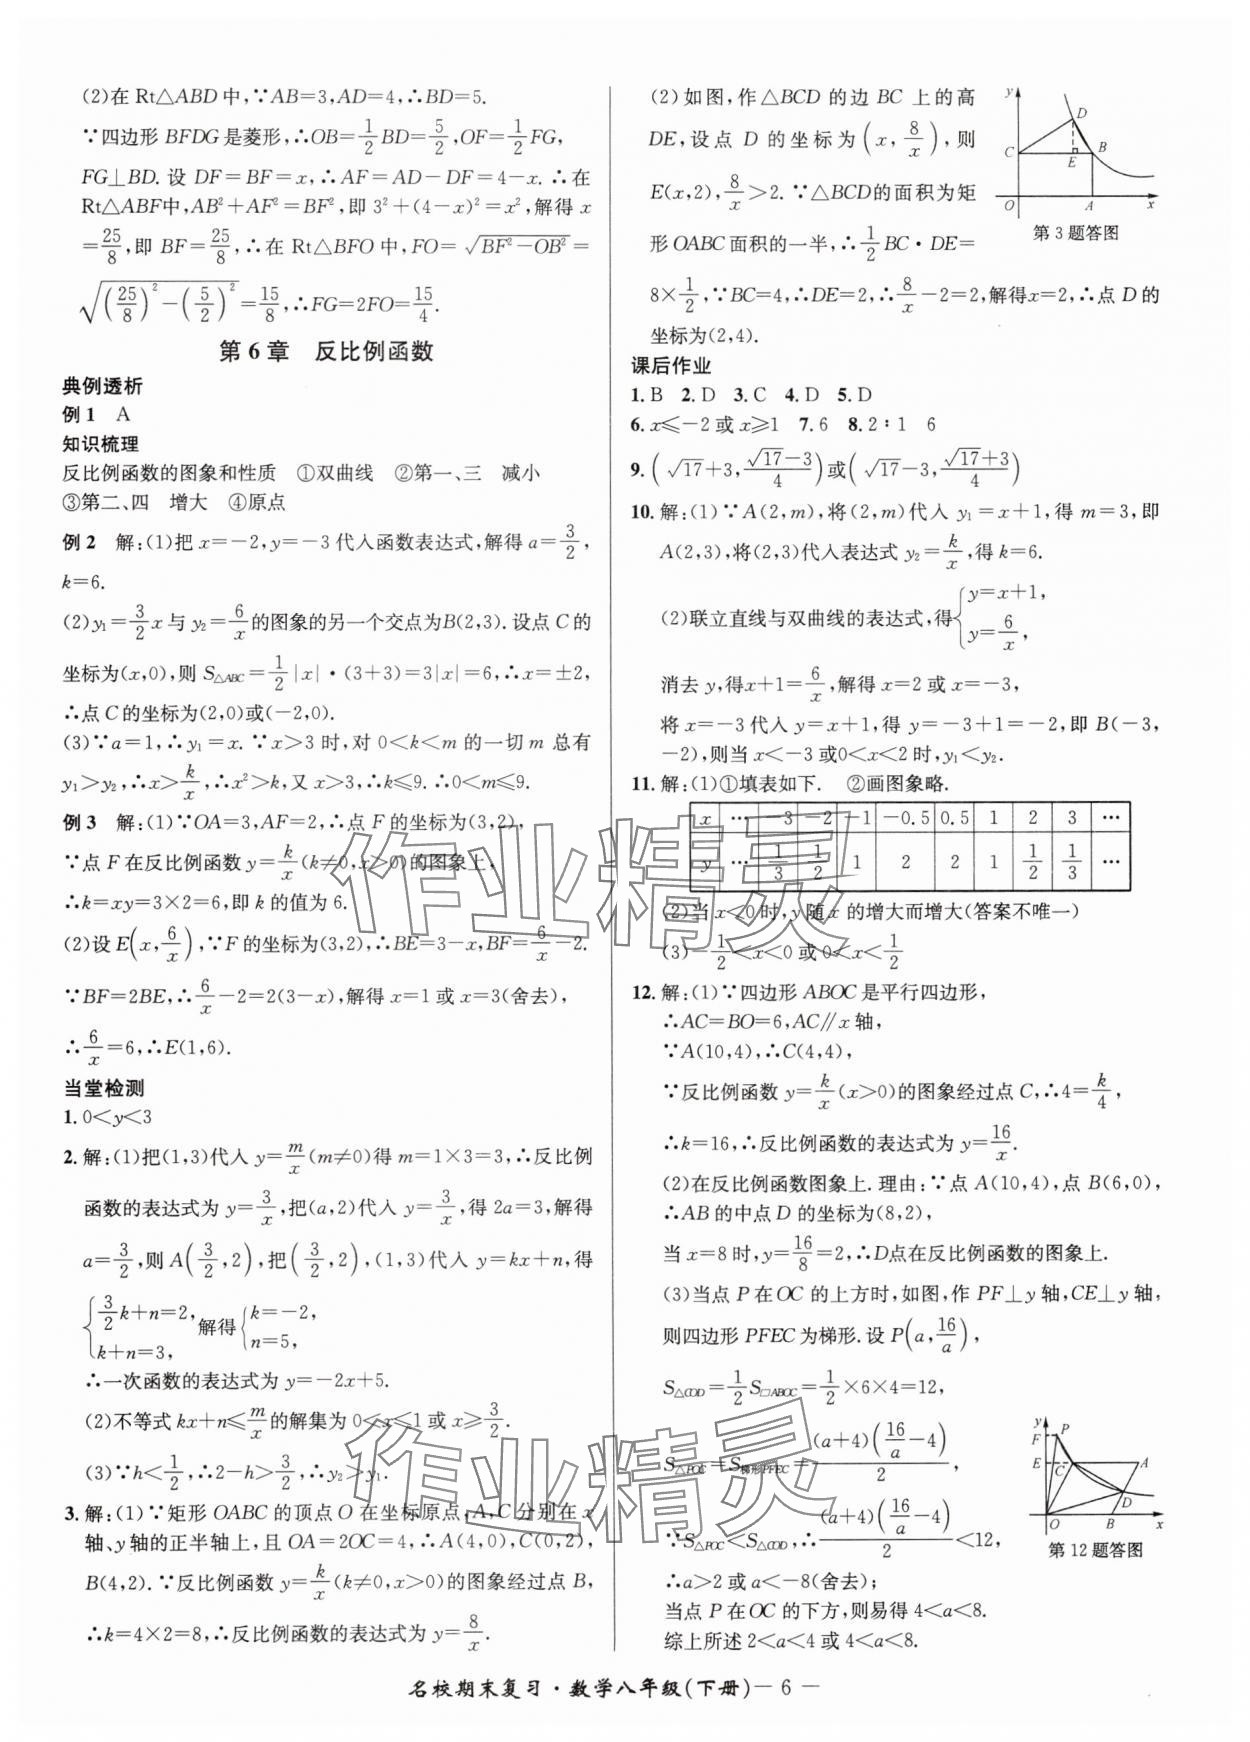 (2)在 Rt△ABD 中,∵AB=3,AD=4,∴BD=5.
∵四边形 BFDG 是菱形,∴OB=1/2 BD=5/2,OF=1/2 FG,
FG⊥BD. 设 DF=BF=x,∴AF=AD-DF=4-x. ∴在
Rt△ABF中,AB²+AF²=BF²,即 3²+(4-x)²=x²,解得 x
=25/8,即 BF=25/8,∴在 Rt△BFO 中,FO=√(BF²-OB²)=
√((25/8)²-(5/2)²)=15/8,∴FG=2FO=15/4.
第 6 章 反比例函数
典例透析
例 1 A
知识梳理
反比例函数的图象和性质 ①双曲线 ②第一、三 减小
③第二、四 增大 ④原点
例 2 解:(1)把 x=-2,y=-3 代入函数表达式,解得 a=3/2,
k=6.
(2)y₁=3/2 x 与 y₂=6/x 的图象的另一个交点为B(2,3). 设点 C 的
坐标为(x,0),则 S△ABC=1/2|x|·(3+3)=3|x|=6,∴x=±2,
∴点 C 的坐标为(2,0)或(-2,0).
(3)∵a=1,∴y₁=x. ∵x>3 时,对 0<k<m 的一切 m 总有
y₁>y₂,∴x>k/x,∴x²>k,又 x>3,∴k≤9. ∴0<m≤9.
例 3 解:(1)∵OA=3,AF=2,∴点 F 的坐标为(3,2),
∵点 F 在反比例函数 y=k/x(k≠0,x>0)的图象上,
∴k=xy=3×2=6,即 k 的值为 6.
(2)设 E(x,6/x),∵F 的坐标为(3,2),∴BE=3-x,BF=6/x-2.
∵BF=2BE,∴6/x-2=2(3-x),解得 x=1 或 x=3(舍去),
∴6/x=6,∴E(1,6).
当堂检测
1. 0<y<3
2. 解:(1)把(1,3)代入 y=m/x(m≠0)得 m=1×3=3,∴反比例
函数的表达式为 y=3/x,把(a,2)代入 y=3/x,得 2a=3,解得
a=3/2,则 A(3/2,2),把(3/2,2),(1,3)代入 y=kx+n,得
{3/2 k+n=2, k+n=3, 解得{k=-2, n=5,
∴一次函数的表达式为 y=-2x+5.
(2)不等式 kx+n≤m/x 的解集为 0<x≤1 或 x≥3/2.
(3)∵h<1/2,∴2-h>3/2,∴y₂>y₁.
3. 解:(1)∵矩形 OABC 的顶点 O 在坐标原点,A,C 分别在 x
轴、y 轴的正半轴上,且 OA=2OC=4,∴A(4,0),C(0,2),
B(4,2). ∵反比例函数 y=k/x(k≠0,x>0)的图象经过点 B,
∴k=4×2=8,∴反比例函数的表达式为 y=8/x.
(2)如图,作△BCD 的边 BC 上的高
DE,设点 D 的坐标为(x,8/x),则
E(x,2),8/x>2. ∵△BCD的面积为矩
形 OABC 面积的一半,∴1/2 BC·DE=
8×1/2,∵BC=4,∴DE=2,∴8/x-2=2,解得x=2,∴点 D 的
坐标为(2,4).
y
D
C
E
B
O
A
x
第 3 题答图
课后作业
1. B 2. D 3. C 4. D 5. D
6. x≤-2 或 x≥1 7. 6 8. 2∶1 6
9. (√17+3,(√17-3)/4)或(√17-3,(√17+3)/4)
10. 解:(1)∵A(2,m),将(2,m)代入 y₁=x+1,得 m=3,即
A(2,3),将(2,3)代入表达式 y₂=k/x,得 k=6.
(2)联立直线与双曲线的表达式,得{y=x+1, y=6/x,
消去 y,得x+1=6/x,解得 x=2 或 x=-3,
将 x=-3 代入 y=x+1,得 y=-3+1=-2,即 B(-3,
-2),则当 x<-3 或0<x<2 时,y₁<y₂.
11. 解:(1)①填表如下. ②画图象略.
x … -3 -2 -1 -0.5 0.5 1 2 3 …
y … 1/3 1/2 1 2 2 1 1/2 1/3 …
(2)当 x<0时,y 随 x 的增大而增大(答案不唯一)
(3)-1/2<x<0 或 0<x<1/2
12. 解:(1)∵四边形 ABOC 是平行四边形,
∴AC=BO=6,AC∥x 轴,
∵A(10,4),∴C(4,4),
∵反比例函数 y=k/x(x>0)的图象经过点 C,∴4=k/4,
∴k=16,∴反比例函数的表达式为 y=16/x.
(2)在反比例函数图象上. 理由:∵点 A(10,4),点 B(6,0),
∴AB 的中点 D 的坐标为(8,2),
当 x=8 时,y=16/8=2,∴D点在反比例函数的图象上.
(3)当点 P 在OC 的上方时,如图,作 PF⊥y 轴,CE⊥y 轴,
则四边形 PFEC 为梯形. 设 P(a,16/a),
S△COD=1/2 S□ABOC=1/2×6×4=12,
S△POC=S梯形PFEC=(a+4)(16/a-4)/2,
∵S△POC<S△COD,∴(a+4)(16/a-4)/2<12,
∴a>2 或 a<-8(舍去);
当点 P 在OC 的下方,则易得 4<a<8.
综上所述 2<a<4 或 4<a<8.
y
F
P
E
C
A
D
O
B
x
第 12 题答图
名校期末复习·数学八年级(下册)— 6 —
作业精灵
作业精灵